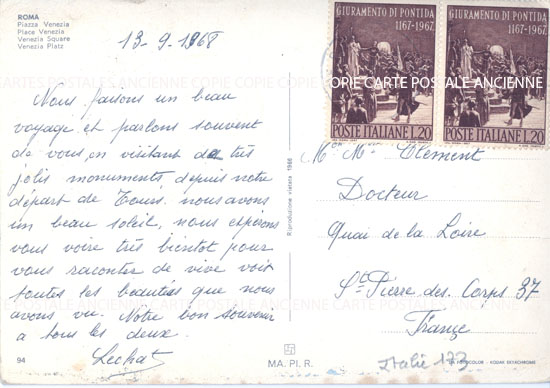 ROMA
Piazza Venezia
Place Venezia
Venezia Square
Venezia Platz
13-9-1968
Nous faisons un beau
voyage et parlons souvent
de vous, en visitant de très
jolis monuments, depuis notre
départ de Tours. nous avons
un beau soleil, nous espérons
vous voire très bientôt pour
vous raconter de vive voix
toutes les beautés que nous
avons vu. Notre bon souvenir
a tous les deux.
Lechat
94
Riproduzione vietata 1966
MA. PI. R.
GIURAMENTO DI PONTIDA
1167-1967
POSTE ITALIANE L.20
GIURAMENTO DI PONTIDA
1167-1967
POSTE ITALIANE L.20
Clement
Docteur
Quai de la Loire
St Pierre des Corps 37
France
Italie 123
KODAK EKTACHROME
CARTES POSTALES ANCIENNE COPIE COPIE COPIE CARTE POSTALE ANCIENNE